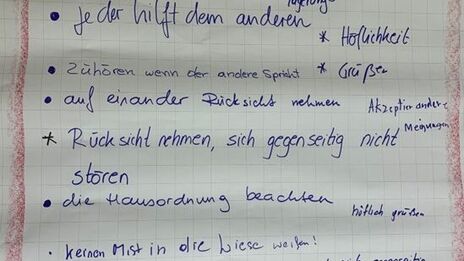 • Jeder hilft dem anderen
* Höflichkeit
• Zuhören wenn der andere Spricht
* Grüßen
• auf einander Rücksicht nehmen
Akzeptier andere
Meinungen
* Rücksicht nehmen, sich gegenseitig nicht
stören
• die Hausordnung beachten
höflich grüßen
• keinen Mist in die Wiese